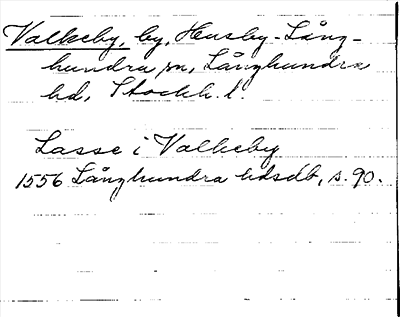 Valkeby, by, Husby-Lång-
hundra sn, Långhundra
hd, Stockh. l.
Lasse i Valkeby
1556 Långhundra hdsdb, s. 90.